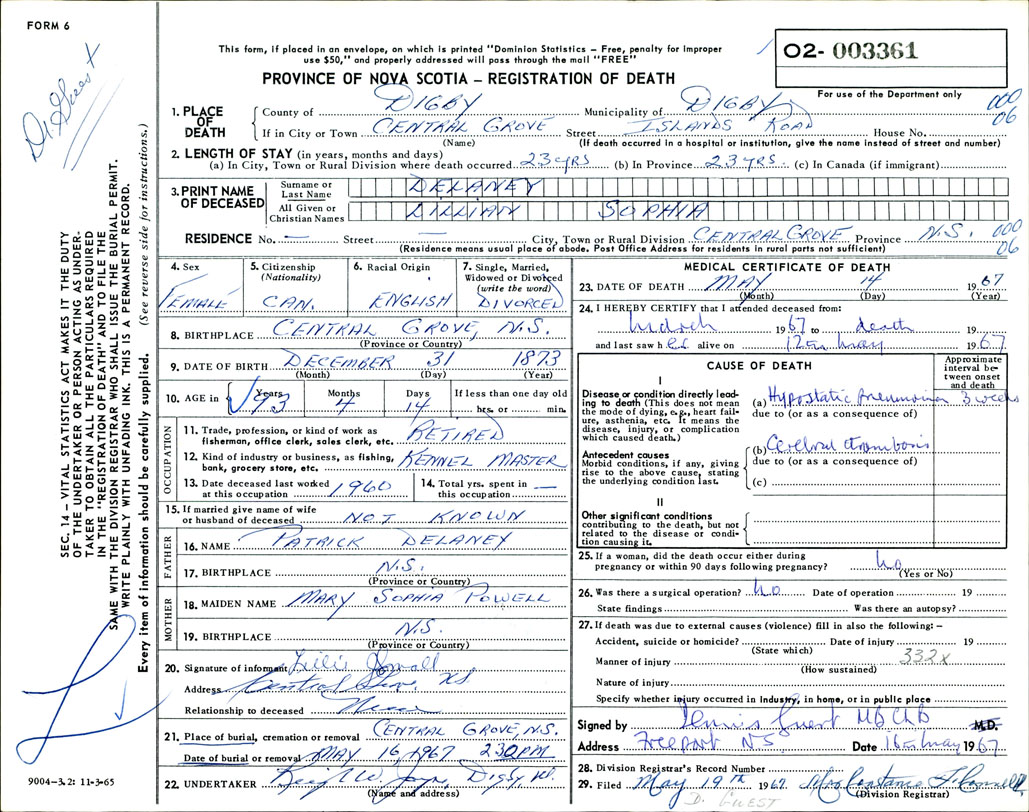 FORM 6
Dr. Guest
This form, if placed in an envelope, on which is printed "Dominion Statistics – Free, penalty for improper
use $50," and properly addressed will pass through the mail "FREE"
PROVINCE OF NOVA SCOTIA – REGISTRATION OF DEATH
02- 003361
For use of the Department only
000
06
1. PLACE OF DEATH
County of DIGBY Municipality of DIGBY
If in City or Town CENTRAL GROVE Street ISLANDS ROAD House No.
(Name) (If death occurred in a hospital or institution, give the name instead of street and number)
2. LENGTH OF STAY (in years, months and days)
(a) In City, Town or Rural Division where death occurred 23 YRS (b) In Province 23 YRS (c) In Canada (if immigrant)
3. PRINT NAME OF DECEASED
Surname or Last Name DELANEY
All Given or Christian Names LILLIAN SOPHIA
RESIDENCE No. — Street — City, Town or Rural Division CENTRAL GROVE Province N.S. 000
06
(Residence means usual place of abode. Post Office Address for residents in rural parts not sufficient)
4. Sex
FEMALE
5. Citizenship
(Nationality)
CAN.
6. Racial Origin
ENGLISH
7. Single, Married, Widowed or Divorced
(write the word)
DIVORCED
8. BIRTHPLACE CENTRAL GROVE, N.S.
(Province or Country)
9. DATE OF BIRTH DECEMBER 31 1873
(Month) (Day) (Year)
10. AGE in Years Months Days If less than one day old
93 4 14 hrs. or min.
OCCUPATION
11. Trade, profession, or kind of work as
fisherman, office clerk, sales clerk, etc. RETIRED
12. Kind of industry or business, as fishing,
bank, grocery store, etc. KENNEL MASTER
13. Date deceased last worked
at this occupation 1960
14. Total yrs. spent in
this occupation —
15. If married give name of wife
or husband of deceased NOT KNOWN
FATHER
16. NAME PATRICK DELANEY
17. BIRTHPLACE N.S.
(Province or Country)
MOTHER
18. MAIDEN NAME MARY SOPHIA POWELL
19. BIRTHPLACE N.S.
(Province or Country)
20. Signature of informant
Address Central Grove, N.S.
Relationship to deceased Niece
21. Place of burial, cremation or removal CENTRAL GROVE, N.S.
Date of burial or removal MAY 16, 1967 2:30 PM.
22. UNDERTAKER Digby
(Name and address)
MEDICAL CERTIFICATE OF DEATH
23. DATE OF DEATH MAY 14 1967
(Month) (Day) (Year)
24. I HEREBY CERTIFY that I attended deceased from:
March 1967 to death 19
and last saw her alive on 12th May 1967
CAUSE OF DEATH
Approximate interval between onset and death
I
Disease or condition directly leading to death (This does not mean the mode of dying, e.g., heart failure, asthenia, etc. It means the disease, injury, or complication which caused death.)
(a) Hypostatic pneumonia 3 weeks
due to (or as a consequence of)
Antecedent causes
Morbid conditions, if any, giving rise to the above cause, stating the underlying condition last.
(b) Cerebral thrombosis
due to (or as a consequence of)
(c)
II
Other significant conditions
contributing to the death, but not related to the disease or condition causing it.
25. If a woman, did the death occur either during
pregnancy or within 90 days following pregnancy? No
(Yes or No)
26. Was there a surgical operation? No Date of operation 19
State findings Was there an autopsy?
27. If death was due to external causes (violence) fill in also the following: –
Accident, suicide or homicide? Date of injury 19
(State which) 332x
Manner of injury
(How sustained)
Nature of injury
Specify whether injury occurred in Industry, in home, or in public place
Signed by Dennis Guest MB ChB M.D.
Address Freeport NS Date 16th May 1967
28. Division Registrar's Record Number
29. Filed May 19th 1967 Mrs Constance
(Division Registrar)
D. GUEST
SEC. 14 – VITAL STATISTICS ACT MAKES IT THE DUTY
OF THE UNDERTAKER OR PERSON ACTING AS UNDERTAKER
TO OBTAIN ALL THE PARTICULARS REQUIRED
IN THE "REGISTRATION OF DEATH" AND TO FILE THE
SAME WITH THE DIVISION REGISTRAR WHO SHALL ISSUE THE BURIAL PERMIT.
WRITE PLAINLY WITH UNFADING INK. THIS IS A PERMANENT RECORD.
Every item of information should be carefully supplied. (See reverse side for instructions.)
9004–3.2: 11-3-65